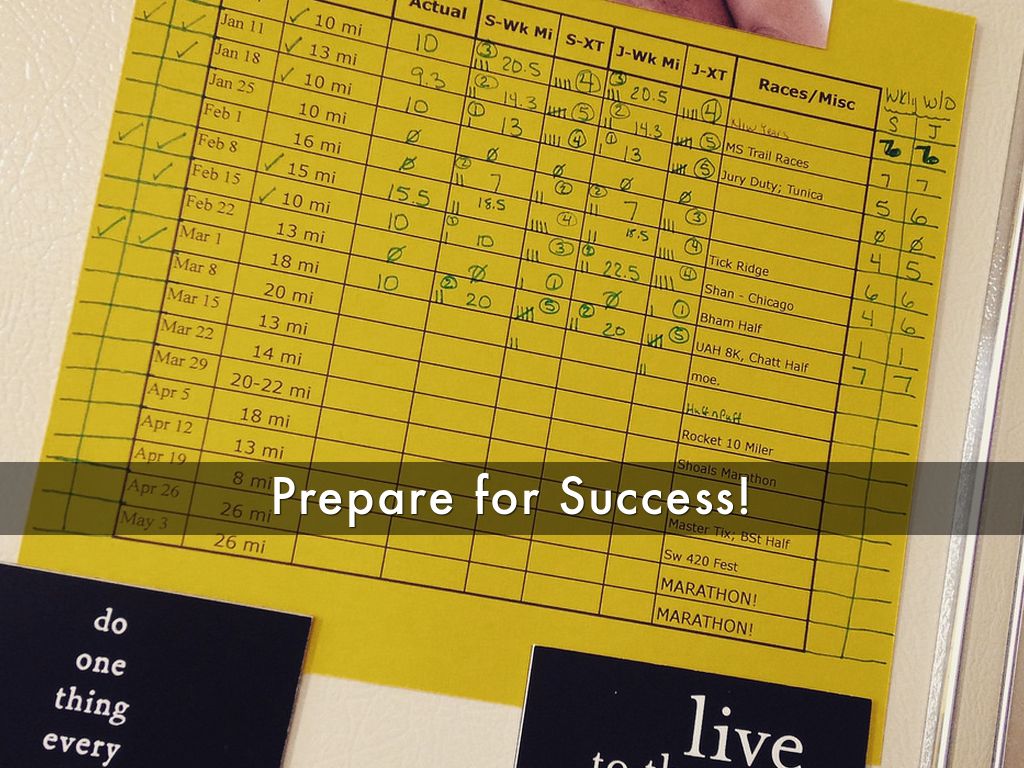 Actual S-Wk Mi S-XT J-Wk Mi J-XT Races/Misc Wkly W/O
S J
✓ 10 mi 10 ③ 20.5 ④ ③ 20.5 ④ New Years
Jan 11 ✓ 13 mi 9.3 ② 14.3 ⑤ ② 14.3 ⑤ MS Trail Races 7 7
Jan 18 ✓ 10 mi 10 ① 13 ④ ① 13 ⑤ Jury Duty; Tunica 5 6
Jan 25 10 mi Ø Ø Ø Ø Ø Ø Ø
Feb 1 16 mi Ø ② 7 ② ② 7 ③ 4 5
Feb 8 ✓ 15 mi 15.5 18.5 ④ 18.5 ④ Tick Ridge 6 6
Feb 15 ✓ 10 mi 10 10 ③ 22.5 ④ Shan - Chicago 4 6
Feb 22 13 mi Ø Ø ① Ø ① Bham Half 1 1
Mar 1 18 mi 10 ② 20 ⑤ ② 20 ⑤ UAH 8K, Chatt Half 7 7
Mar 8 20 mi moe.
Mar 15 13 mi Huff n Puff
Mar 22 14 mi Rocket 10 Miler
Mar 29 20-22 mi Shoals Marathon
Apr 5 18 mi
Apr 12 13 mi Master Tix; BSt Half
Apr 19 8 mi Sw 420 Fest
Apr 26 26 mi MARATHON!
May 3 26 mi MARATHON!
Prepare for Success!
do
one
thing
every
live